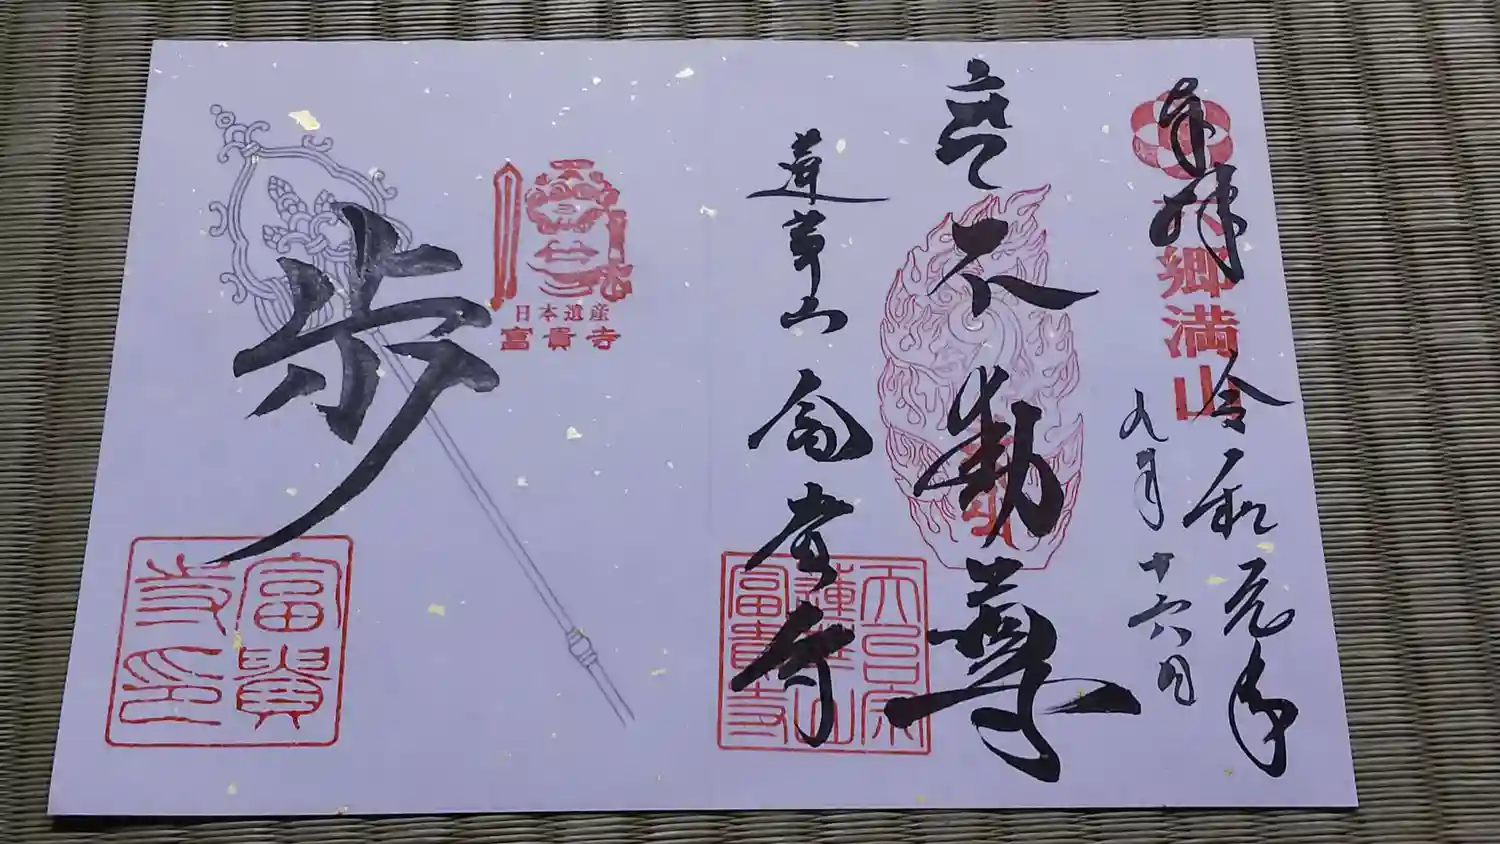 奉拝
六郷満山
令和元年
九月十六日
不動尊
蓮華山 富貴寺
天台宗
蓮華山
富貴寺
日本遺産
富貴寺
歩
富貴
寺印